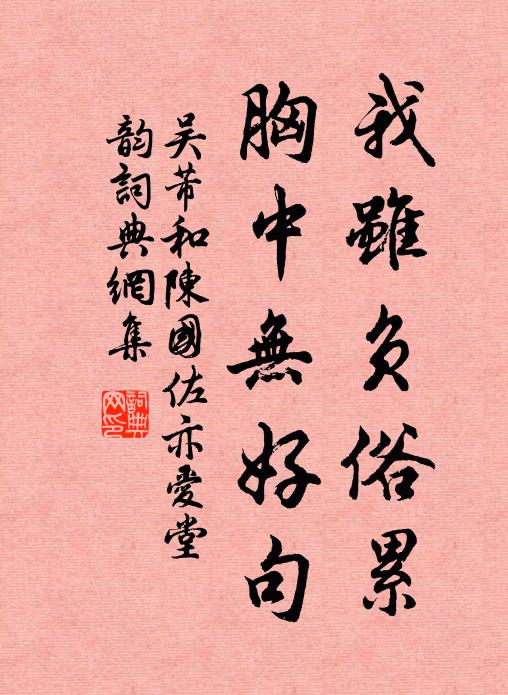 我雖負俗累
胸中無好句
吴芾和陳國佐亦愛堂
韵詞典網集
詞典
网印